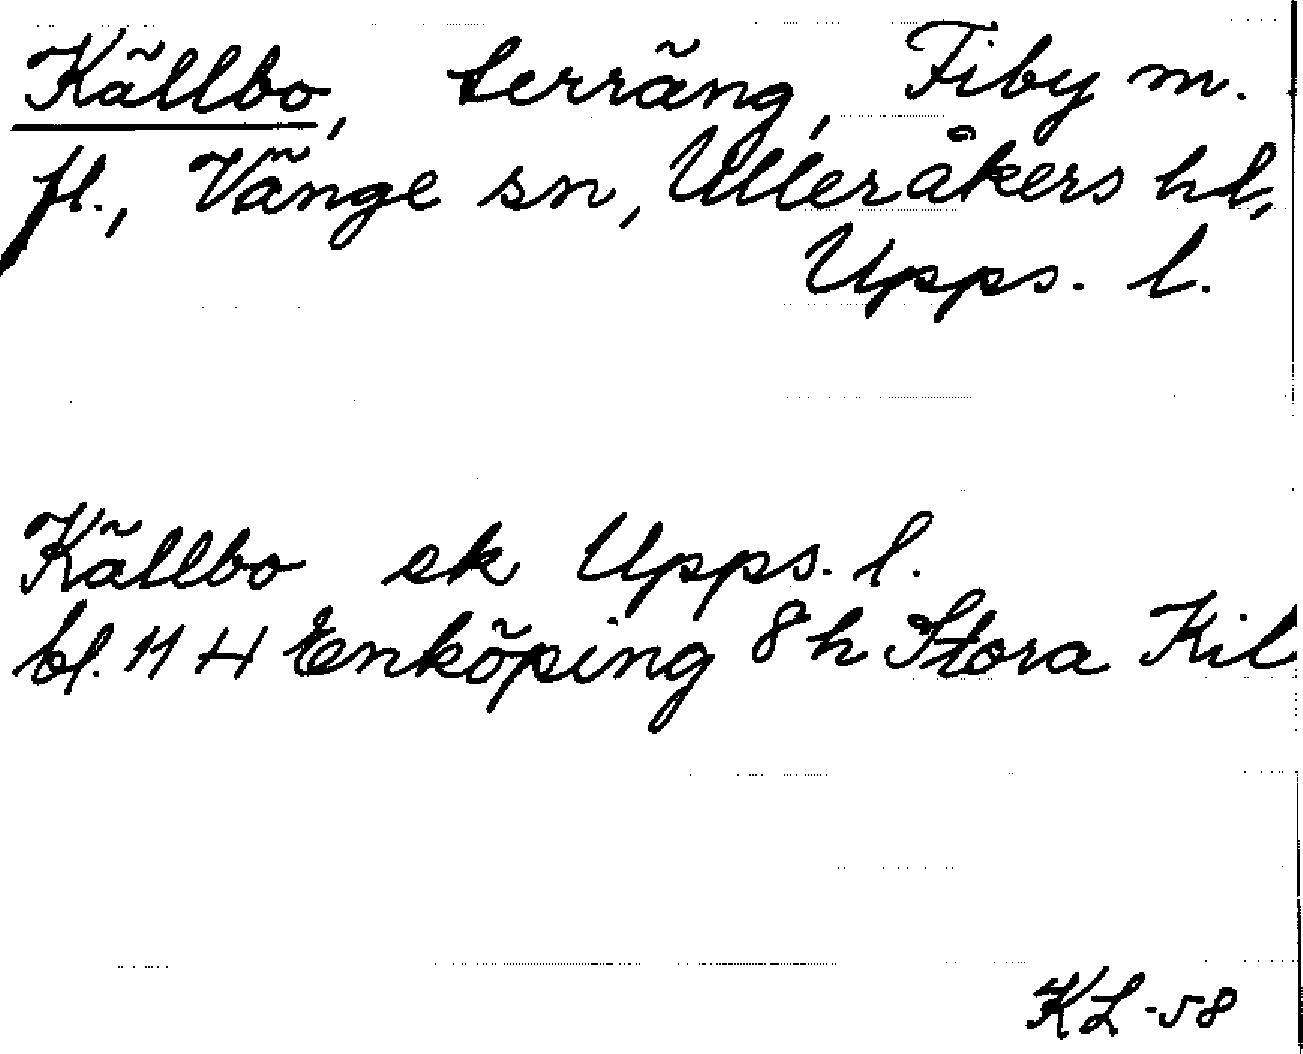 Källbo, terräng, Fiby m.
fl., Vänge sn, Ulleråkers hd,
Upps. l.
Källbo ek Upps. l.
bl. 11 H Enköping 8 h Stora Kil
KL -58